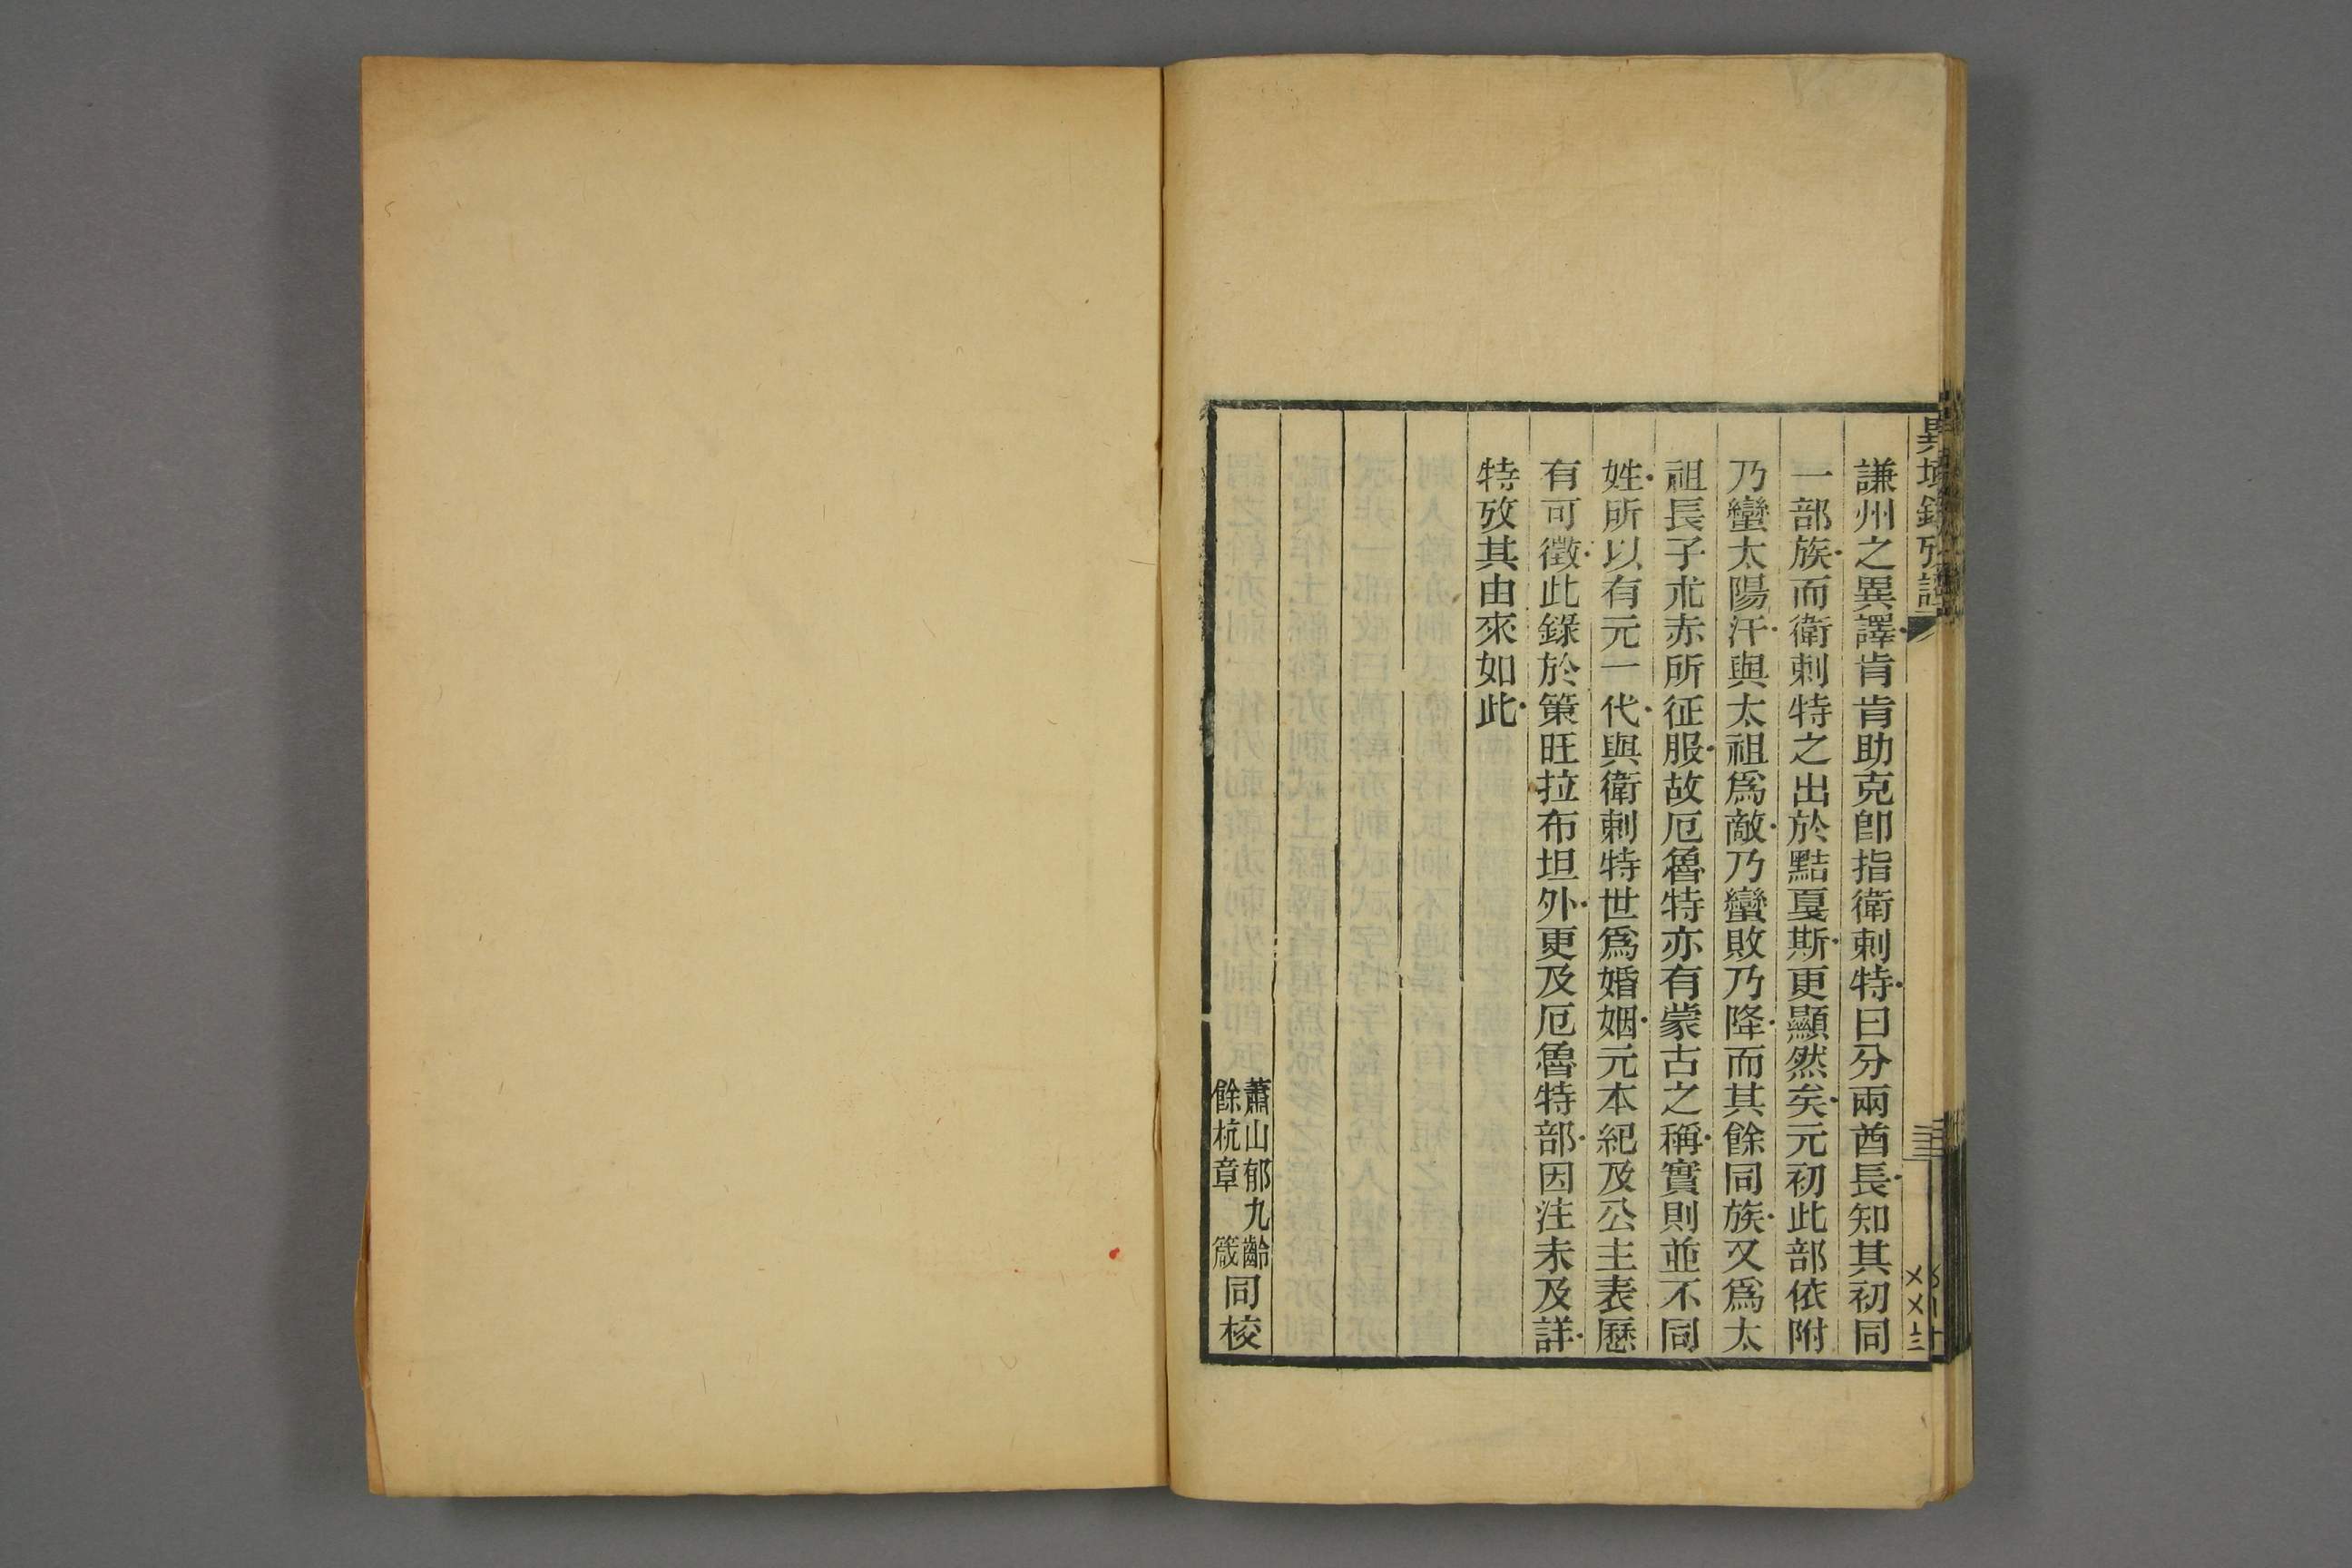 異域錄攷證
謙州之異譯肯肯助克卽指衛剌特曰分兩酋長知其初同
一部族而衛剌特之出於黠戛斯更顯然矣元初此部依附
乃蠻太陽汗與太祖爲敵乃蠻敗乃降而其餘同族又爲太
祖長子朮赤所征服故厄魯特亦有蒙古之稱實則並不同
姓所以有元一代與衛剌特世爲婚姻元本紀及公主表歷
有可徵此錄於策旺拉布坦外更及厄魯特部因注未及詳
特攷其由來如此
蕭山郁九齡
餘杭章　箴
同校